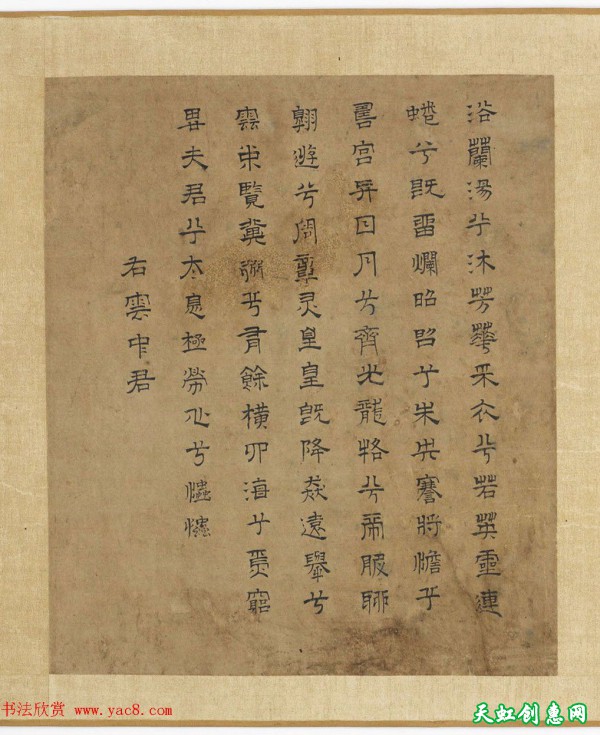 浴蘭湯兮沐芳華采衣兮若英靈連
蜷兮既留爛昭昭兮未央謇將憺兮
壽宮與日月兮齊光龍駕兮帝服聊
翱遊兮周章灵皇皇既降猋遠舉兮
雲中覽冀州兮有餘橫四海兮焉窮
思夫君兮太息極勞心兮
右雲中君
书法欣赏 www.yac8.com
天虹创惠网